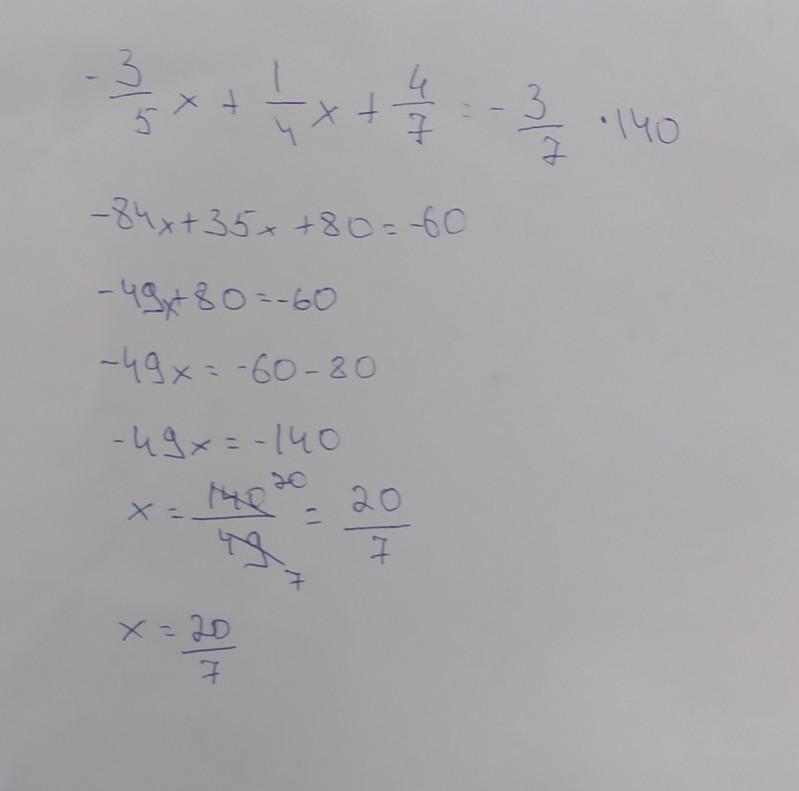 -3/5 x + 1/4 x + 4/7 = -3/7 ·140
-84x+35x+80=-60
-49x+80=-60
-49x=-60-80
-49x=-140
x=140/49 20 7 = 20/7
x=20/7